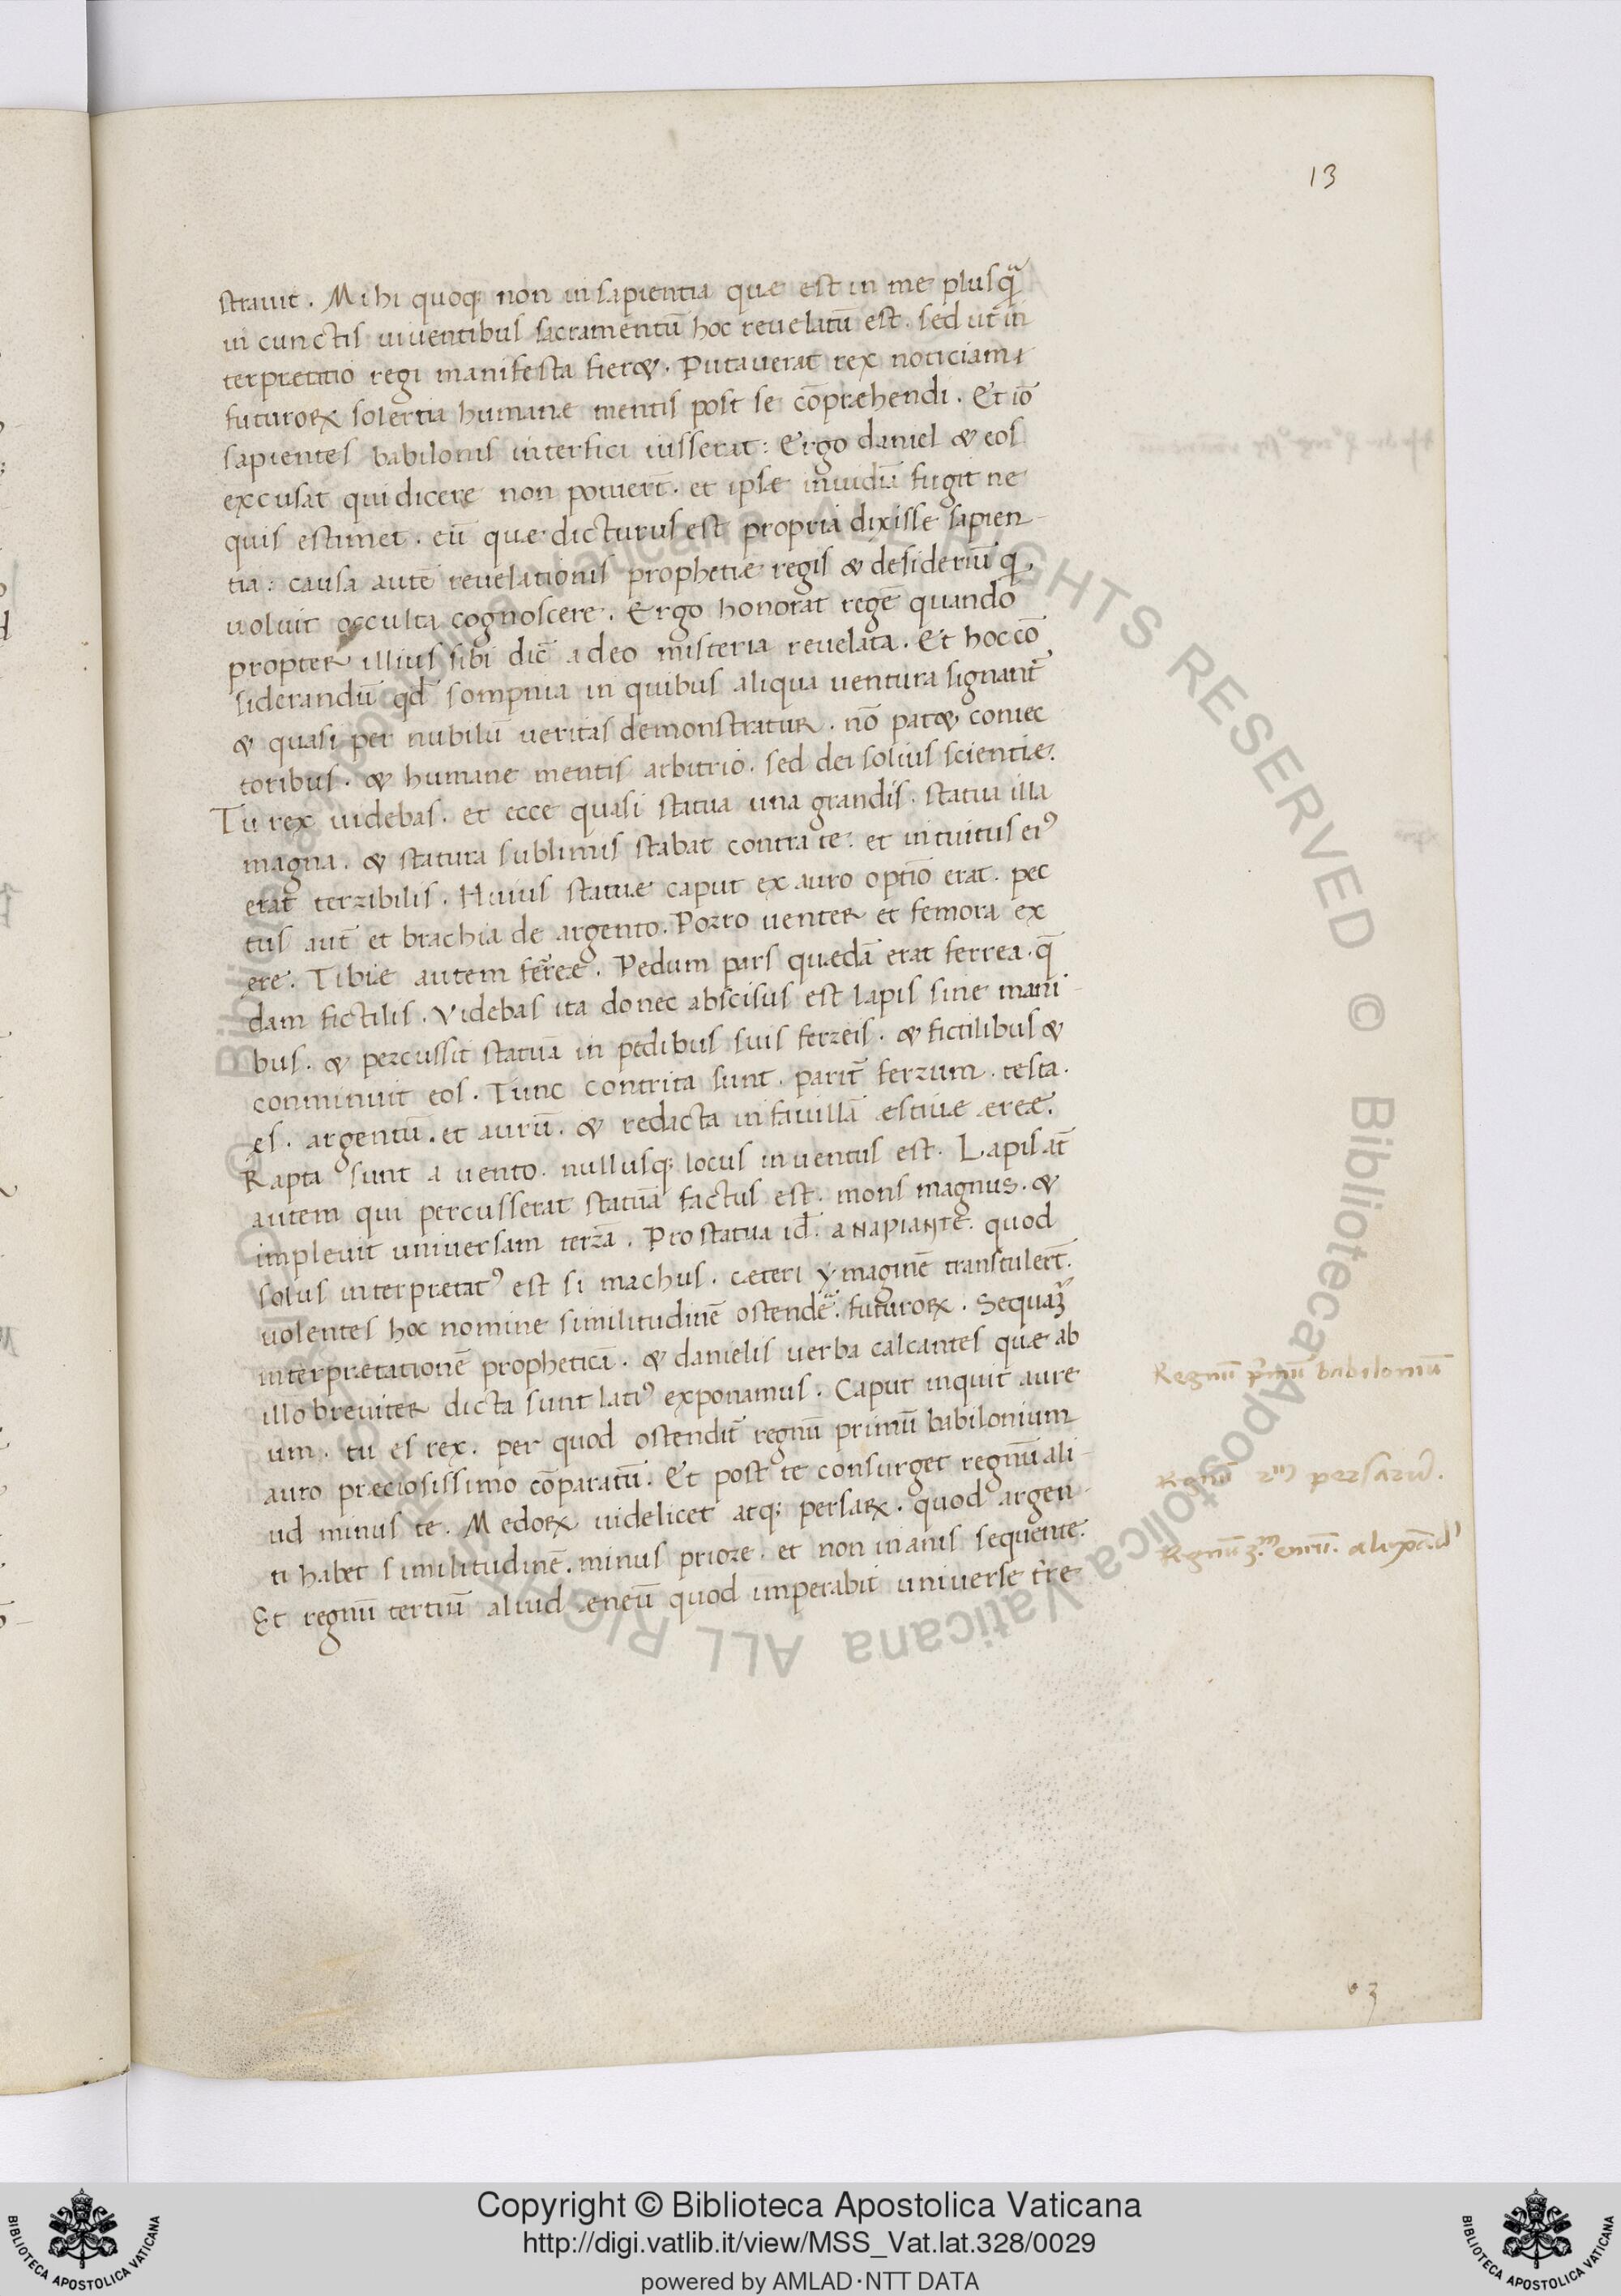 13
strauit. Mihi quoq; non in sapientia que est in me plusq̃
in cunctis uiuentibus sacramentū hoc reuelatū est. sed ut in
terpretatio regi manifesta fier&. Putauerat rex noticiam
futuroꝝ solertia humane mentis post se cōpræhendi. Et iō
sapientes babilonis interfici iusserat: Ergo daniel & eos
excusat qui dicere non potuerr̄t. et ipse inuidiā fugit ne
quis estimet. eū que dicturus est propria dixisse sapien-
tia: causa autē reuelationis prophetiæ regis & desideriū q
uoluit occulta cognoscere. Ergo honorat regē quando
propter illius sibi dic̄ a deo misteria reuelata. Et hoc cō
siderandū qđ sompnia in quibus aliqua uentura signant̄
& quasi per nubilū ueritas demonstratur. nō pat& coniec
toribus. & humane mentis arbitrio. sed dei solius scientie.
Tu rex uidebas. et ecce quasi statua una grandis. statua illa
magna. & statura sublimis stabat contra te: et intuitus eiꝰ
erat terribilis. Huius statuæ caput ex auro optīo erat. pec
tus aut̄ et brachia de argento. Porro uenter et femora ex
ere. Tibiæ autem ferreæ. Pedum pars quædā erat ferrea. q̄
dam fictilis. Videbas ita donec abscisus est lapis sine mani-
bus. & percussit statuā in pedibus suis ferreis. & fictilibus &
conminuit eos. Tunc contrita sunt. parit̄ ferrum. testa.
es. argentū. et aurū. & redacta in fauillā æstiuæ areæ.
Rapta sunt a uento. nullusq; locus inuentus est. Lapis at̄
autem qui percusserat statuā factus est. mons magnus. &
impleuit uniuersam terrā. Pro statua id̄. ANAPIANTE. quod
solus interpretatꝰ est si machus. cæteri ymaginē transtulerr̄t.
uolentes hoc nomine similitudinē ostendē. futuroꝝ. Sequam̄
interpretationē propheticā. & danielis uerba calcantes que ab
illo breuiter dicta sunt latiꝰ exponamus. Caput inquit aure
um. tu es rex. per quod ostendit̄ regnū primū babilonium
auro præciosissimo cōparatū. Et post te consurget regnū ali-
ud minus te. Medoꝝ uidelicet atq; persaꝝ. quod argen-
ti habet similitudinē. minus priore. et non inanis sequente.
Et regnū tertiū aliud æneū quod imperabit uniuerse tr̄e
Regnū p̄mū babiloniū
Regnū 2m persarū.
© Biblioteca Apostolica Vaticana ALL RIGHTS RESERVED
Copyright © Biblioteca Apostolica Vaticana
http://digi.vatlib.it/view/MSS_Vat.lat.328/0029
powered by AMLAD·NTT DATA
BIBLIOTECA APOSTOLICA VATICANA
BIBLIOTECA APOSTOLICA VATICANA